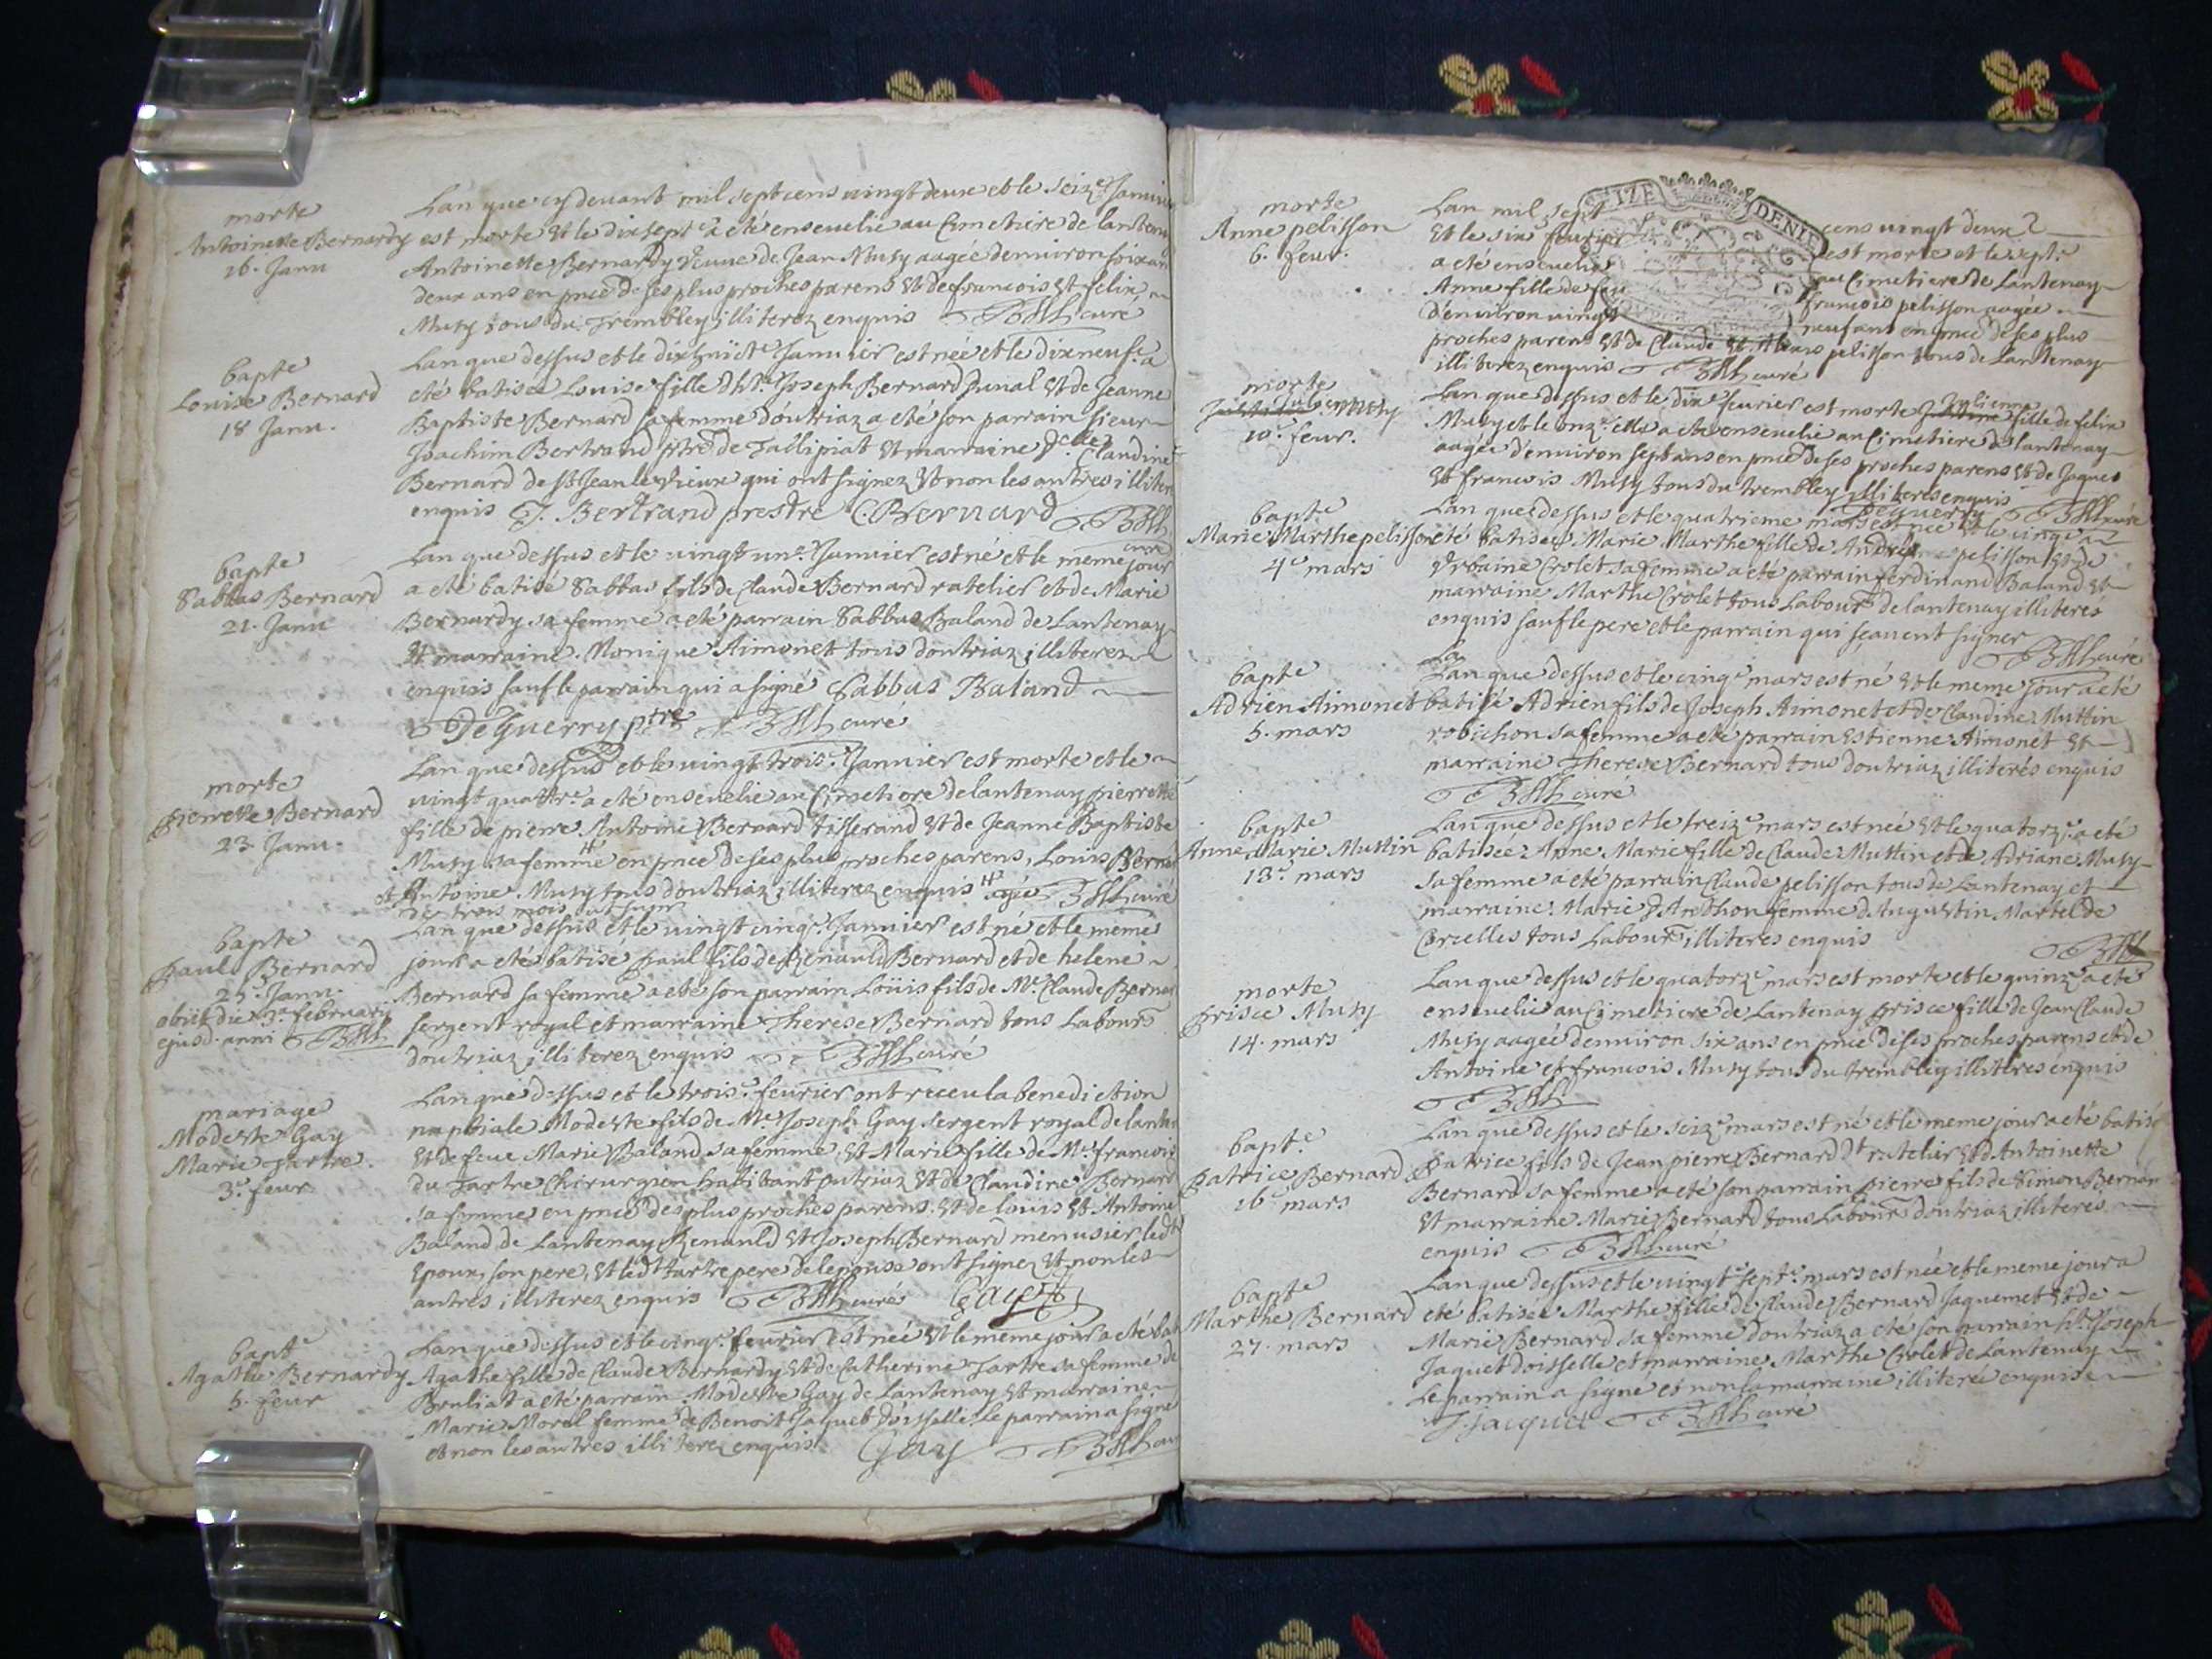 morte
Antoinette Bernardy
16. Janu
L'an que cy devant mil sept cens vingt deux et le seize Janvier
est morte et le dix sept e a eté ensevelie au Cimetiere de lantenay
Antoinette Bernardy veuve de Jean Musy aagée denviron soixante
deux ans en pnce de ses plus proches parens et de francois et felix
Musy tous du Trembley illiterez enquis curé
bapte
Louise Bernard
18 Janu.
Lan que dessus et le dix huict e Janvier est née et le dix neuf e a
eté batisée Louise fille d'ht. Joseph Bernard Junal et de Jeanne
Baptiste Bernard sa femme d'outriaz a eté son parrain sieur
Joachim Bertrand ptre de Tallipiat et marraine Claudine
Bernard de St Jean le vieux qui ont signez et non les autres illiterez
enquis J. Bertrand prestre C. Bernard
curé
bapte
Sabbas Bernard
21. Janu
Lan que dessus et le vingt un e Janvier est né et le meme jour
a eté batisé Sabbas fils de Claude Bernard ratelier et de Marie
Bernardy sa femme a eté parrain Sabbas Baland de Lantenay
et marraine Monique Aimonet tous doutriaz illiterez
enquis sauf le parrain qui a signé Sabbas Baland
DeGuerry ptre curé
morte
pierrette Bernard
23 Janu.
Lan que dessus et le vingt trois e Janvier est morte et le
vingt quattre a eté ensevelie au Cimetiere de lantenay pierrette
fille de pierre Antoine Bernard tisserand et de Jeanne Baptiste
Musy sa femme en pnce de ses plus proches parens, Louis Bernard
et Antoine Musy tous doutriaz illiterez enquis curé
de trois mois
bapte
paul Bernard
25 e Janu.
obiit die februarij
ejusd. anni
Lan que dessus et le vingt cinq e Janvier est né et le meme
jour a eté batisé paul fils de Renauld Bernard et de helene
Bernard sa femme a eté son parrain Louis fils de Me. Claude Bernard
sergent royal et marraine Therese Bernard tous Labours
doutriaz illiterez enquis curé
mariage
Modeste Gay
Marie Tartre.
3 e feur
Lan que dessus et le trois e fevrier ont receu la benediction
nuptiale Modeste fils de Me. Joseph Gay sergent royal de lantenay
et de feue Marie Baland sa femme, et Marie fille de Me. francois
du Tartre Chirurgien habitant outriaz et de Claudine Bernard
sa femme en pnce des plus proches parens et de louis et Antoine
Baland de Lantenay Renauld et Joseph Bernard menusier ledt
epoux, son pere, et ledt tartre pere de lepouse ont signez et non les
autres illiterez enquis curé Gay
bapt e
Agathe Bernardy
5. feur
Lan que dessus et le cinq e fevrier est née et le meme jour a eté bat
Agathe fille de Claude Bernardy et de Catherine Tartre sa femme de
Bruliat a eté parrain Modeste Gay de Lantenay et marraine
Marie Morel femme de Benoit Jaquet doisselle. Le parrain a signé
et non les autres illiterez enquis. Gay
morte
Anne pelisson
6. feur.
IZE DENIE
Lan mil sept cens vingt deux
et le six e fevrier est morte et le sept e
a eté ensevelie au Cimetiere de Lantenay
Anne fille de feu francois pelisson aagée
d'environ vingt neuf ans en pnce de ses plus
proches parens et de Claude et pelisson tous de Lantenay
illiterez enquis curé
morte
Julienne Musy
10 e feur.
Lan que dessus et le dix e fevrier est morte Julienne fille de felix
Musy et le onz e elle a eté ensevelie au Cimetiere de lantenay
aagée d'environ sept ans en pnce de ses proches parens et de Jaques
et francois Musy tous du trembley illiteres enquis
DeGuerry curé
bapte
Marie Marthe pelisson
4 e mars
Lan que dessus et le quatrieme mars est née et le cinq e a
eté batisée Marie Marthe fille de André pelisson et de
Urbaine Crolet sa femme a eté parrain ferdinand Baland et
marraine Marthe Crolet tous Labours de lantenay illiteres
enquis sauf le pere et le parrain qui sçavent signer
curé
bapte
Adrien Aimonet
5. mars
Lan que dessus et le cinq e mars est né et le meme jour a eté
batisé Adrien fils de Joseph Aimonet et de Claudine Muttin
robichon sa femme a eté parrain Estienne Aimonet et
marraine Therese Bernard tous doutriaz illiterés enquis
curé
bapte
Anne Marie Muttin
13 e mars
Lan que dessus et le treiz e mars est née et le quatorz e a eté
batisée Anne Marie fille de Claude Muttin et de Adriane Musy
sa femme a eté parrain Claude pelisson tous de Lantenay et
marraine Marie femme d'Augustin Martel de
Corcelles tous Labours, illiteres enquis
morte
prisce Musy
14. mars
Lan que dessus et le quatorz e mars est morte et le quinz e a eté
ensevelie au Cimetiere de Lantenay prisce fille de Jean Claude
Musy aagée denviron six ans en pnce de ses proches parens et de
Antoine et francois Musy tous du trembley illiteres enquis
bapt e
patrice Bernard
16 e mars
Lan que dessus et le seiz e mars est né et le meme jour a eté batisé
patrice fils de Jean pierre Bernard dt ratelier et d'Antoinette
Bernard sa femme a eté son parrain pierre fils de Simon Bernard
et marraine Marie Bernard tous Labours doutriaz illiterés
enquis curé
bapte
Marthe Bernard
27. mars
Lan que dessus et le vingt sept e mars est née et le meme jour a
eté batisée Marthe fille de Claude Bernard Jaquemet et de
Marie Bernard sa femme doutriaz a eté son parrain ht. Joseph
Jaquet doisselle et marraine Marthe Crolet de Lantenay
Le parrain a signé et non la marraine illiteree enquise
J. Jacquet curé